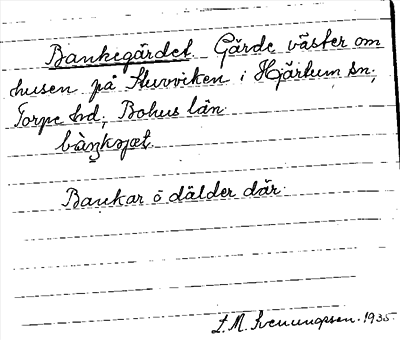 Bankegärdet. Gärde väster om
husen på Stuvviken i Hjärtum sn;
Torpe hd; Bohus län.
Bankar o dälder där.
L. M. Svenungsson. 1935.